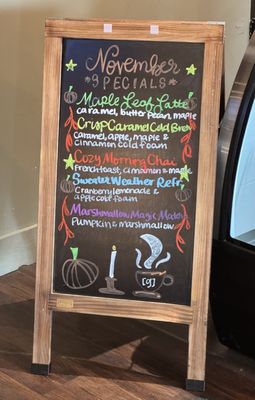 November
*SPECIALS*
Maple Leaf Latte
caramel, butter pecan, maple
Crisp Caramel Cold Brew
caramel, apple, maple &
cinnamon cold foam
Cozy Morning Chai
french toast, cinnamon & maple
Sweater Weather Refr.
Cranberry, lemonade &
apple cold foam
Marshmallow Magic Matcha
Pumpkin & marshmallow
[g]